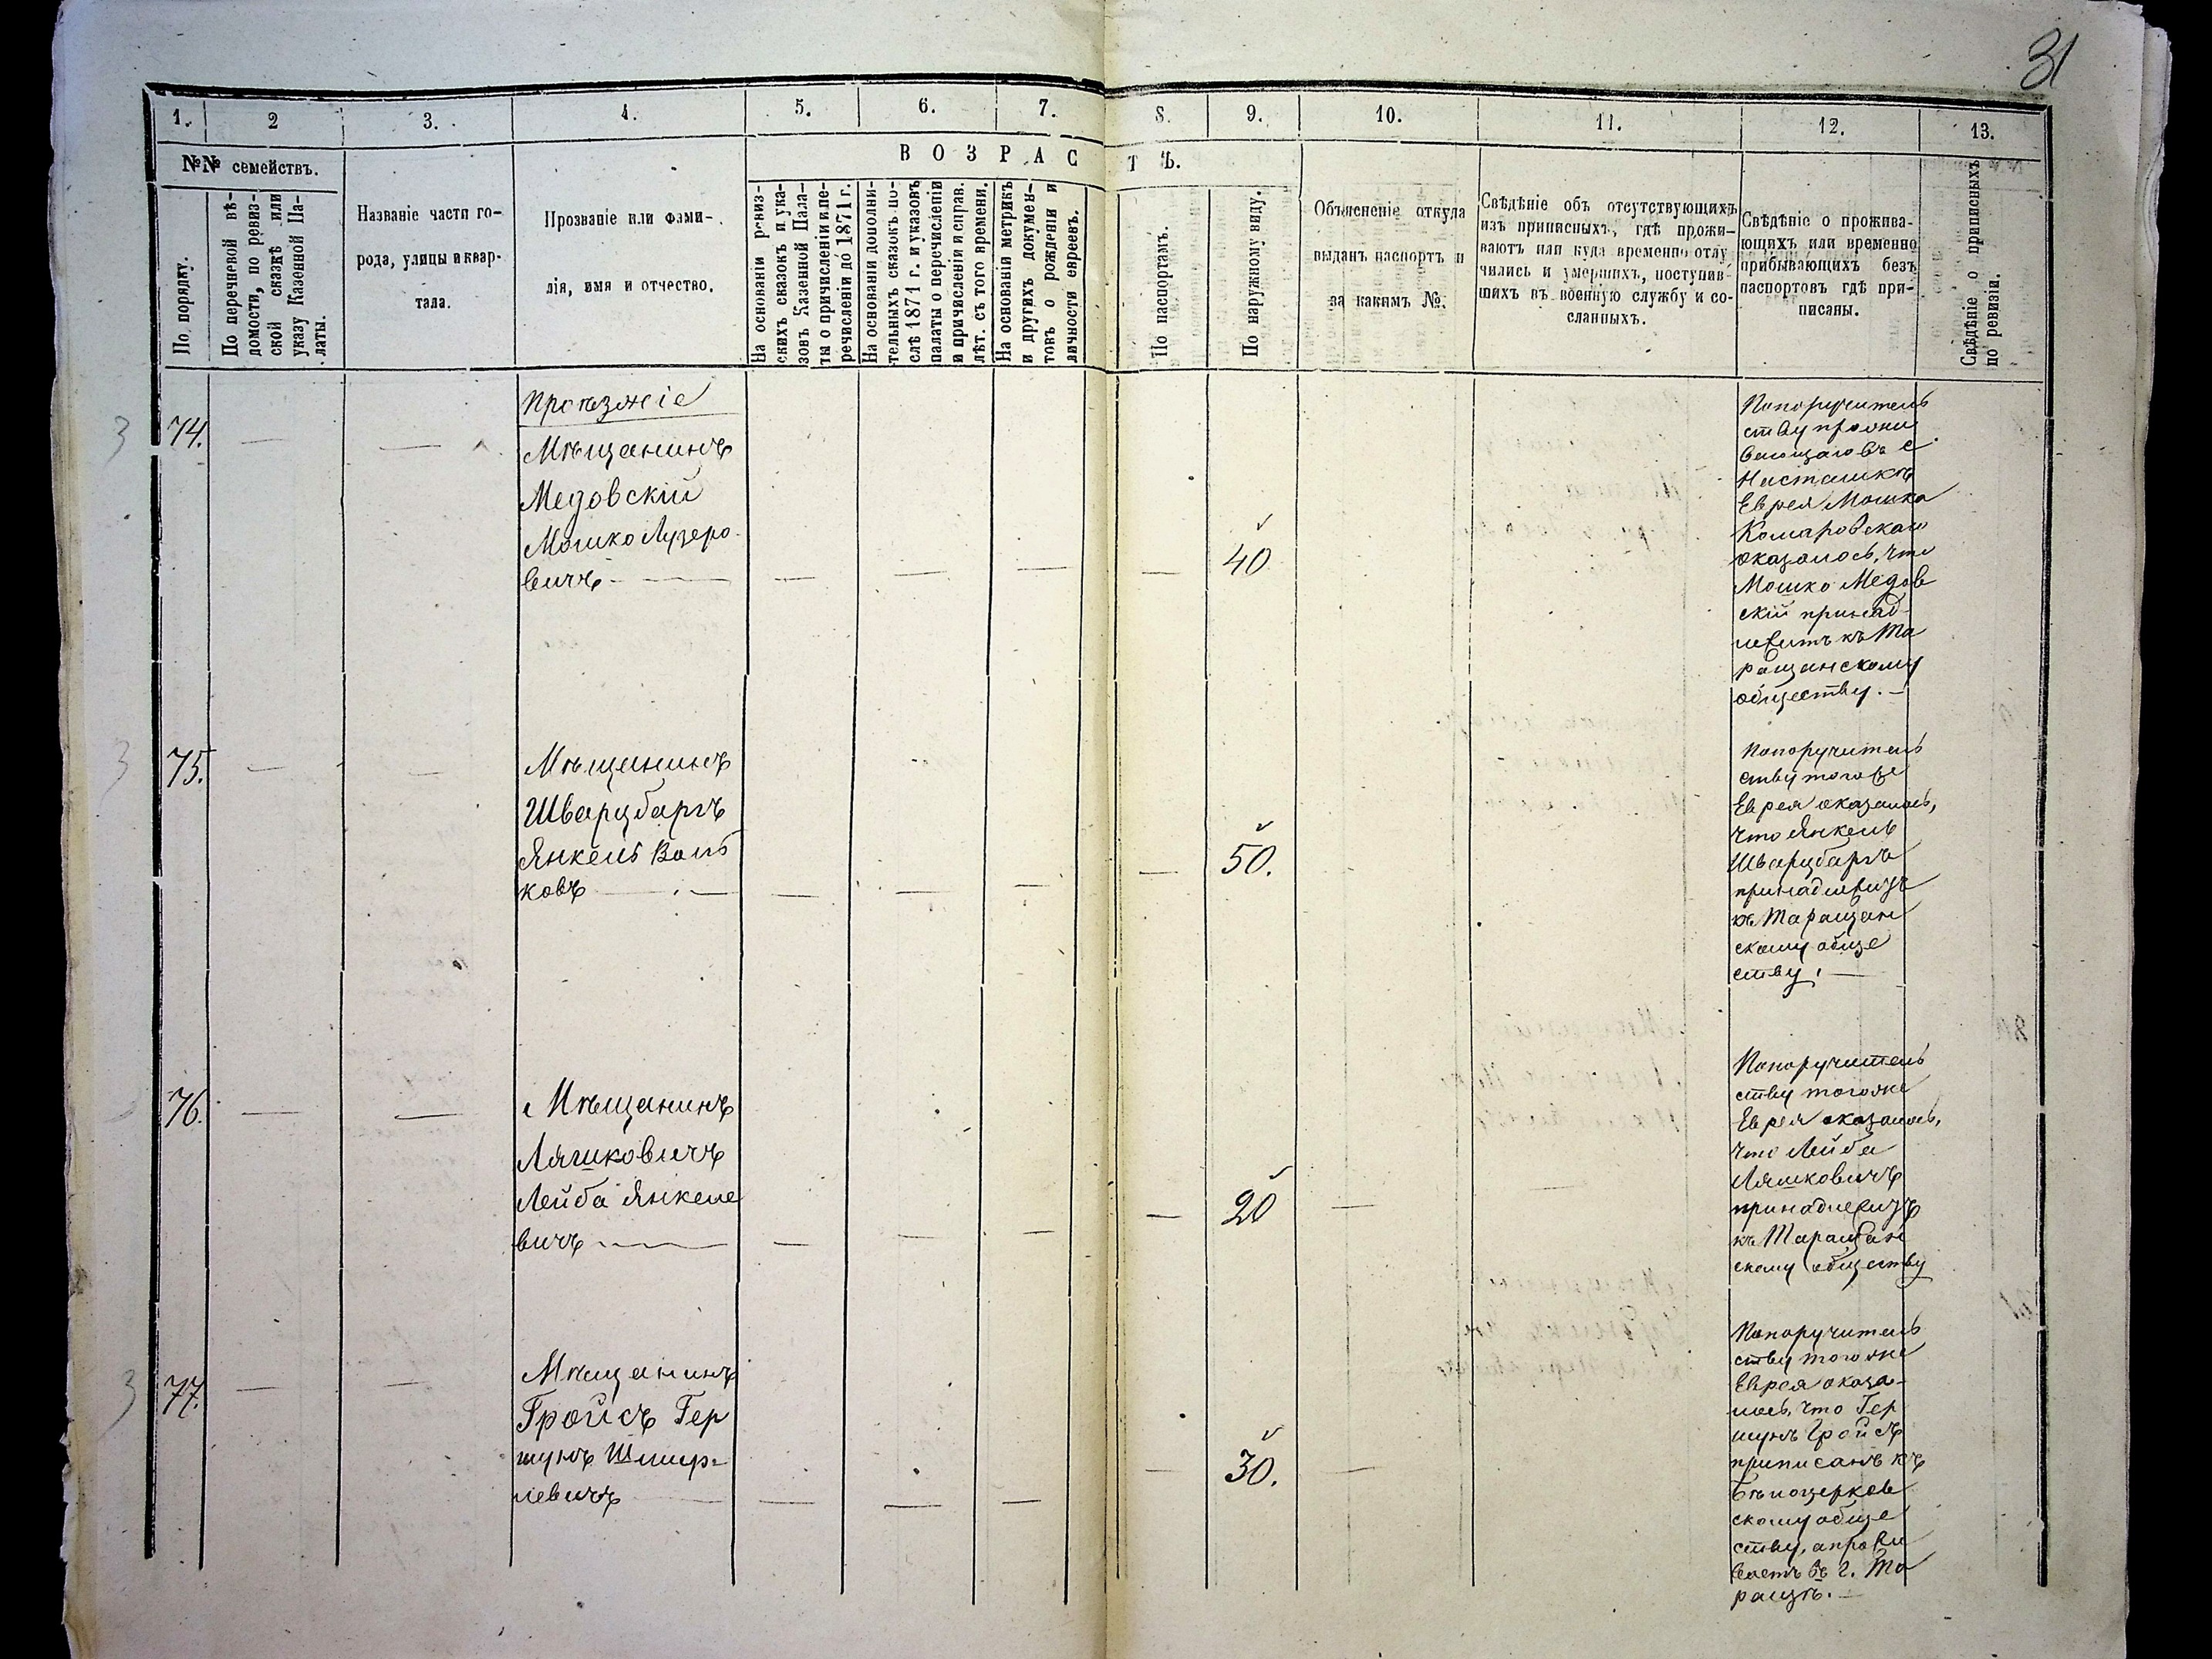 31
1. 2 3. 4. 5. 6. 7. 8. 9. 10. 11. 12. 13.
№№ семействъ.
По порядку.
По перечневой вѣ-
домости, по ревиз-
ской сказкѣ или
указу Казенной Па-
латы.
Названіе части го-
рода, улицы и квар-
тала.
Прозваніе или фами-
лія, имя и отчество.
ВОЗРАСТѢ.
На основаніи ревиз-
скихъ сказокъ и ука-
зовъ Казенной Пала-
ты о причисленіи и пе-
речисленіи до 1871 г.
На основаніи дополни-
тельныхъ сказокъ по-
слѣ 1871 г. и указовъ
палаты о перечисленіи
и причисленіи и справ.
лѣт. съ того времени.
На основаніи метрикъ
и другихъ докумен-
товъ о рожденіи и
личности евреевъ.
По паспортамъ.
По наружному виду.
Объясненіе откуда
выданъ паспортъ и
за какимъ №.
Свѣдѣніе объ отсутствующихъ
изъ приписныхъ, гдѣ прожи-
ваютъ или куда временно отлу
чились и умершихъ, поступив-
шихъ въ военную службу и со-
сланныхъ.
Свѣдѣніе о прожива-
ющихъ или временно
прибывающихъ безъ
паспортовъ гдѣ при-
писаны.
Свѣдѣніе о приписныхъ
по ревизіи.
Проѣзжіе
3 74. — —
Мѣщанинъ
Медовскій
Мошко Лузеро-
вичъ — — — — —
40
Попоручитель
ству прожи
вающаго въ с.
Насташкѣ
Еврея Мошка
Комаровскаго
оказалось, что
Мошко Медов
скій принад-
лежитъ къ Та
ращанскому
обществу. —
3 75. — —
Мѣщанинъ
Шварцбаргъ
ЯнкельВоль
ковъ — — — — —
50.
Попоручитель
ству тогоже
Еврея оказалось,
что Янкель
Шварцбаргъ
принадлежитъ
къ Таращан
скому обще
ству. —
76. — —
Мѣщанинъ
Ляшковичъ
Лейба Янкеле
вичъ — — — — —
20 — —
Попоручитель
ству тогоже
Еврея оказалось,
что Лейба
Ляшковичъ
принадлежитъ
къ Таращан
скому обществу
3 77. — —
Мѣщанинъ
Гройсъ Гер
шунъ Шмер-
левичъ — — — — —
30. —
Попоручитель
ству тогоже
Еврея оказа-
лось, что Гер
шунъ Гройсъ
приписанъ къ
Бѣлоцерков
скому обще
ству, а прожи
ваетъ въ г. Та
ращѣ. —